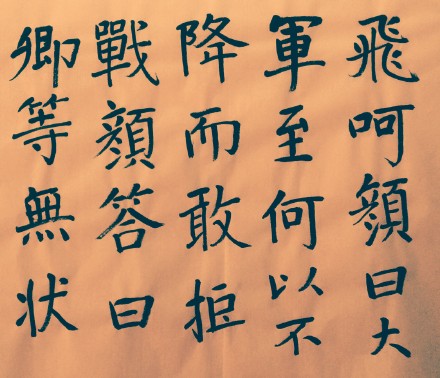 飛呵顔曰大
軍至何以不
降而敢拒
戰顔答曰
卿等無状